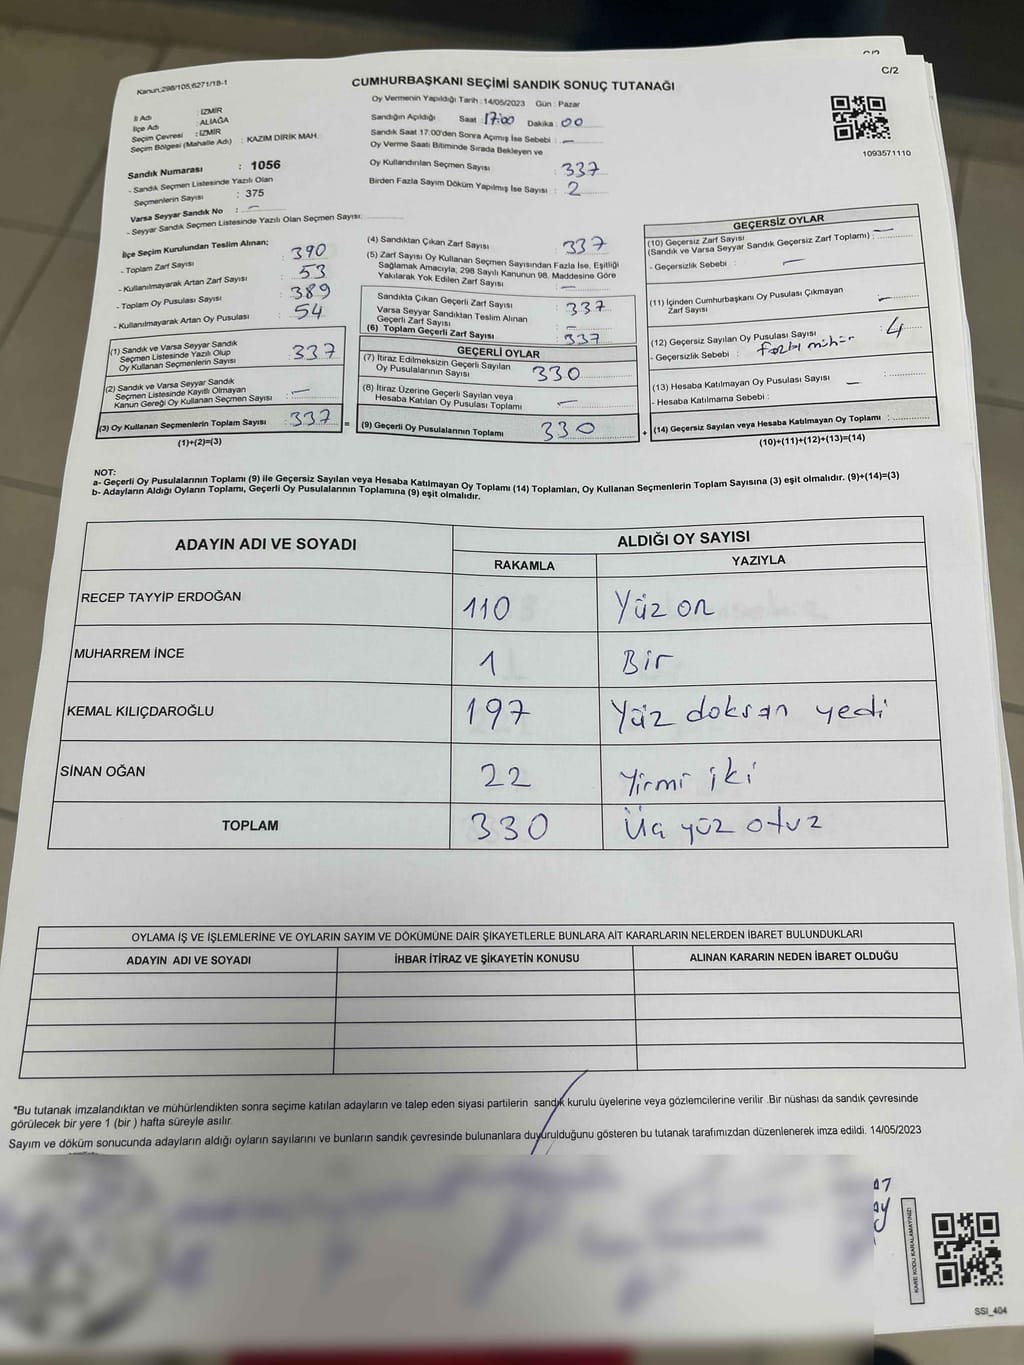 C/2
C/2
Kanun;298/105,6271/18-1
CUMHURBAŞKANI SEÇİMİ SANDIK SONUÇ TUTANAĞI
İl Adı : İZMİR
İlçe Adı : ALİAĞA
Seçim Çevresi : İZMİR
Seçim Bölgesi (Mahalle Adı) : KAZIM DİRİK MAH.
Sandık Numarası : 1056
- Sandık Seçmen Listesinde Yazılı Olan
Seçmenlerin Sayısı : 375
Varsa Seyyar Sandık No : —
- Seyyar Sandık Seçmen Listesinde Yazılı Olan Seçmen Sayısı:
Oy Vermenin Yapıldığı Tarih : 14/05/2023 Gün : Pazar
Sandığın Açıldığı Saat : 17:00 Dakika : 00
Sandık Saat 17:00'den Sonra Açımış İse Sebebi : —
Oy Verme Saati Bitiminde Sırada Bekleyen ve
Oy Kullandırılan Seçmen Sayısı : 337
Birden Fazla Sayım Döküm Yapılmış İse Sayısı : 2
1093571110
İlçe Seçim Kurulundan Teslim Alınan;
- Toplam Zarf Sayısı : 390
- Kullanılmayarak Artan Zarf Sayısı : 53
- Toplam Oy Pusulası Sayısı : 389
- Kullanılmayarak Artan Oy Pusulası : 54
(1) Sandık ve Varsa Seyyar Sandık
Seçmen Listesinde Yazılı Olup
Oy Kullanan Seçmenlerin Sayısı : 337
(2) Sandık ve Varsa Seyyar Sandık
Seçmen Listesinde Kayıtlı Olmayan
Kanun Gereği Oy Kullanan Seçmen Sayısı : —
(3) Oy Kullanan Seçmenlerin Toplam Sayısı : 337 =
(1)+(2)=(3)
(4) Sandıktan Çıkan Zarf Sayısı : 337
(5) Zarf Sayısı Oy Kullanan Seçmen Sayısından Fazla İse, Eşitliği
Sağlamak Amacıyla, 298 Sayılı Kanunun 98. Maddesine Göre
Yakılarak Yok Edilen Zarf Sayısı : —
Sandıkta Çıkan Geçerli Zarf Sayısı : 337
Varsa Seyyar Sandıktan Teslim Alınan
Geçerli Zarf Sayısı : —
(6) Toplam Geçerli Zarf Sayısı : 337
GEÇERLİ OYLAR
(7) İtiraz Edilmeksizin Geçerli Sayılan
Oy Pusulalarının Sayısı : 330
(8) İtiraz Üzerine Geçerli Sayılan veya
Hesaba Katılan Oy Pusulası Toplamı : —
(9) Geçerli Oy Pusulalarının Toplamı : 330 +
GEÇERSİZ OYLAR
(10) Geçersiz Zarf Sayısı
(Sandık ve Varsa Seyyar Sandık Geçersiz Zarf Toplamı) : —
- Geçersizlik Sebebi : —
(11) İçinden Cumhurbaşkanı Oy Pusulası Çıkmayan
Zarf Sayısı : —
(12) Geçersiz Sayılan Oy Pusulası Sayısı : 4
- Geçersizlik Sebebi : fazla mühür
(13) Hesaba Katılmayan Oy Pusulası Sayısı : —
- Hesaba Katılmama Sebebi :
(14) Geçersiz Sayılan veya Hesaba Katılmayan Oy Toplamı :
(10)+(11)+(12)+(13)=(14)
NOT:
a- Geçerli Oy Pusulalarının Toplamı (9) ile Geçersiz Sayılan veya Hesaba Katılmayan Oy Toplamı (14) Toplamları, Oy Kullanan Seçmenlerin Toplam Sayısına (3) eşit olmalıdır. (9)+(14)=(3)
b- Adayların Aldığı Oyların Toplamı, Geçerli Oy Pusulalarının Toplamına (9) eşit olmalıdır.
ADAYIN ADI VE SOYADI ALDIĞI OY SAYISI
RAKAMLA YAZIYLA
RECEP TAYYİP ERDOĞAN 110 Yüz on
MUHARREM İNCE 1 Bir
KEMAL KILIÇDAROĞLU 197 Yüz doksan yedi
SİNAN OĞAN 22 Yirmi iki
TOPLAM 330 Üç yüz otuz
OYLAMA İŞ VE İŞLEMLERİNE VE OYLARIN SAYIM VE DÖKÜMÜNE DAİR ŞİKAYETLERLE BUNLARA AİT KARARLARIN NELERDEN İBARET BULUNDUKLARI
ADAYIN ADI VE SOYADI İHBAR İTİRAZ VE ŞİKAYETİN KONUSU ALINAN KARARIN NEDEN İBARET OLDUĞU
*Bu tutanak imzalandıktan ve mühürlendikten sonra seçime katılan adayların ve talep eden siyasi partilerin sandık kurulu üyelerine veya gözlemcilerine verilir .Bir nüshası da sandık çevresinde
görülecek bir yere 1 (bir ) hafta süreyle asılır.
Sayım ve döküm sonucunda adayların aldığı oyların sayılarını ve bunların sandık çevresinde bulunanlara duyurulduğunu gösteren bu tutanak tarafımızdan düzenlenerek imza edildi. 14/05/2023
KARE KODU KARALAMAYINIZ!
SSI_404